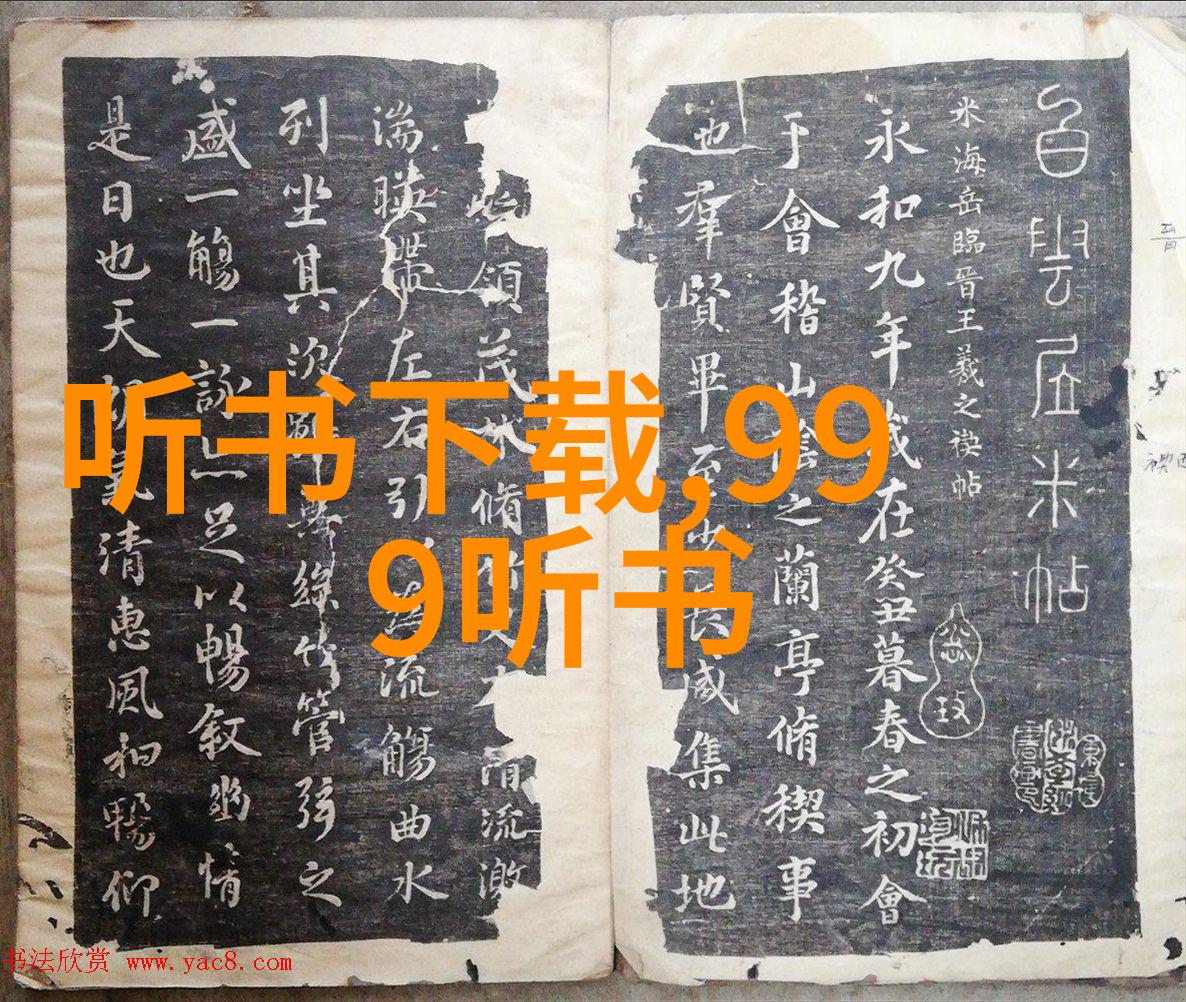 白雲居米帖
米海岳臨晉王羲之禊帖
永和九年歲在癸丑暮春之初會
于會稽山陰之蘭亭脩稧事
也羣賢畢至少長咸集此地
領茂林脩竹又清流激
湍暎帶左右引以為流觴曲水
列坐其次雖無絲竹管弦之
盛一觴一詠亦足以暢叙幽情
是日也天朗氣清惠風和暢仰
听书下载,99
9听书
书法欣赏 www.yac8.com